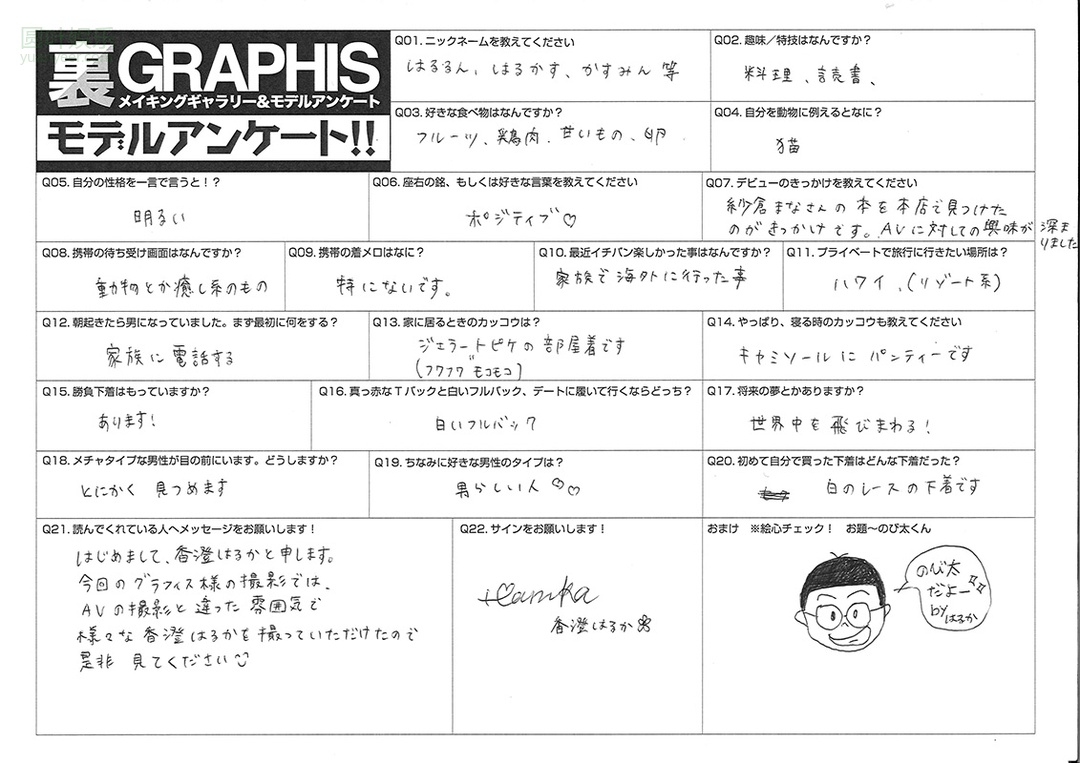 裏GRAPHIS
メイキングギャラリー&モデルアンケート
モデルアンケート!!
Q01. ニックネームを教えてください
はるるん、はるかす、かすみん 等
Q02. 趣味／特技はなんですか？
料理、読書、
Q03. 好きな食べ物はなんですか？
フルーツ、鶏肉、甘いもの、卵
Q04. 自分を動物に例えるとなに？
猫
Q05. 自分の性格を一言で言うと！？
明るい
Q06. 座右の銘、もしくは好きな言葉を教えてください
ポジティブ♡
Q07. デビューのきっかけを教えてください
紗倉まなさんの本を本店で見つけた
のがきっかけです。AVに対しての興味が深ま
りました
Q08. 携帯の待ち受け画面はなんですか？
動物とか癒し系のもの
Q09. 携帯の着メロはなに？
特にないです。
Q10. 最近イチバン楽しかった事はなんですか？
家族で海外に行った事
Q11. プライベートで旅行に行きたい場所は？
ハワイ、(リゾート系)
Q12. 朝起きたら男になっていました。まず最初に何をする？
家族に電話する
Q13. 家に居るときのカッコウは？
ジェラートピケの部屋着です
(フワフワ モコモコ)
Q14. やっぱり、寝る時のカッコウも教えてください
キャミソールにパンティーです
Q15. 勝負下着はもっていますか？
あります!
Q16. 真っ赤なTバックと白いフルバック、デートに履いて行くならどっち？
白いフルバック
Q17. 将来の夢とかありますか？
世界中を飛びまわる!
Q18. メチャタイプな男性が目の前にいます。どうしますか？
とにかく 見つめます
Q19. ちなみに好きな男性のタイプは？
男らしい人♡♡
Q20. 初めて自分で買った下着はどんな下着だった？
白のレースの下着です
Q21. 読んでくれている人へメッセージをお願いします！
はじめまして、香澄はるかと申します。
今回のグラフィス様の撮影では、
AVの撮影と違った雰囲気で
様々な香澄はるかを撮っていただけたので
是非 見てください
Q22. サインをお願いします！
香澄はるか
おまけ ※絵心チェック！ お題～のび太くん
のび太
だよー
by
はるか